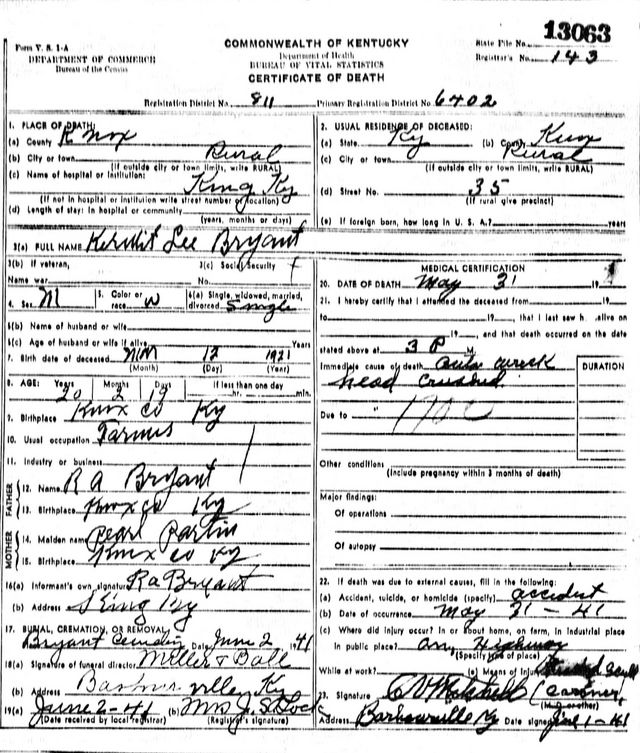 13063
Form V. S. 1-A
DEPARTMENT OF COMMERCE
Bureau of the Census
COMMONWEALTH OF KENTUCKY
Department of Health
BUREAU OF VITAL STATISTICS
CERTIFICATE OF DEATH
State File No.
Registrar's No. 143
Registration District No. 811 Primary Registration District No. 6402
1. PLACE OF DEATH:
(a) County Knox
(b) City or town Rural
(If outside city or town limits, write RURAL)
(c) Name of hospital or institution:
King Ky
(If not in hospital or institution write street number or location)
(d) Length of stay: in hospital or community
(years, months or days)
2. USUAL RESIDENCE OF DECEASED:
(a) State Ky (b) County Knox
(c) City or town Rural
(If outside city or town limits, write RURAL)
(d) Street No. 35
(If rural give precinct)
(e) If foreign born, how long in U. S. A.? years
3(a) FULL NAME Kermit Lee Bryant
3(b) If veteran, 3(c) Social Security
Name war No.
4. Sex M 5. Color or race W 6(a) Single, widowed, married, divorced Single
6(b) Name of husband or wife
6(c) Age of husband or wife if alive Years
7. Birth date of deceased 12 1921
(Month) (Day) (Year)
8. AGE: Years Months Days If less than one day
20 2 19 hr. min.
9. Birthplace Knox Co Ky
10. Usual occupation Farmer
11. Industry or business
FATHER
12. Name R A Bryant
13. Birthplace Knox Co Ky
MOTHER
14. Maiden name Pearl Partin
15. Birthplace Knox Co Ky
16(a) Informant's own signature R a Bryant
(b) Address King Ky
17. BURIAL, CREMATION, OR REMOVAL
Bryant Cemetery Date June 2 1941
18(a) Signature of funeral director Miller & Ball
(b) Address Barbourville Ky
19(a) June 2-41 (b) Mrs J. S. Lock
(Date received by local registrar) (Registrar's signature)
MEDICAL CERTIFICATION
20. DATE OF DEATH May 31 19
21. I hereby certify that I attended the deceased from 19
to 19 , that I last saw h alive on
19 , and that death occurred on the date
stated above at 3 P M.
Immediate cause of death auto wreck
head crushed
DURATION
Due to
Other conditions
(Include pregnancy within 3 months of death)
Major findings:
Of operations
Of autopsy
22. If death was due to external causes, fill in the following:
(a) Accident, suicide, or homicide (specify) accident
(b) Date of occurrence May 31-41
(c) Where did injury occur? In or about home, on farm, in industrial place
In public place? on Highway
(Specify type of place)
While at work? (e) Means of Injury
23. Signature (Coroner)
Address Barbourville Ky Date signed 1-41